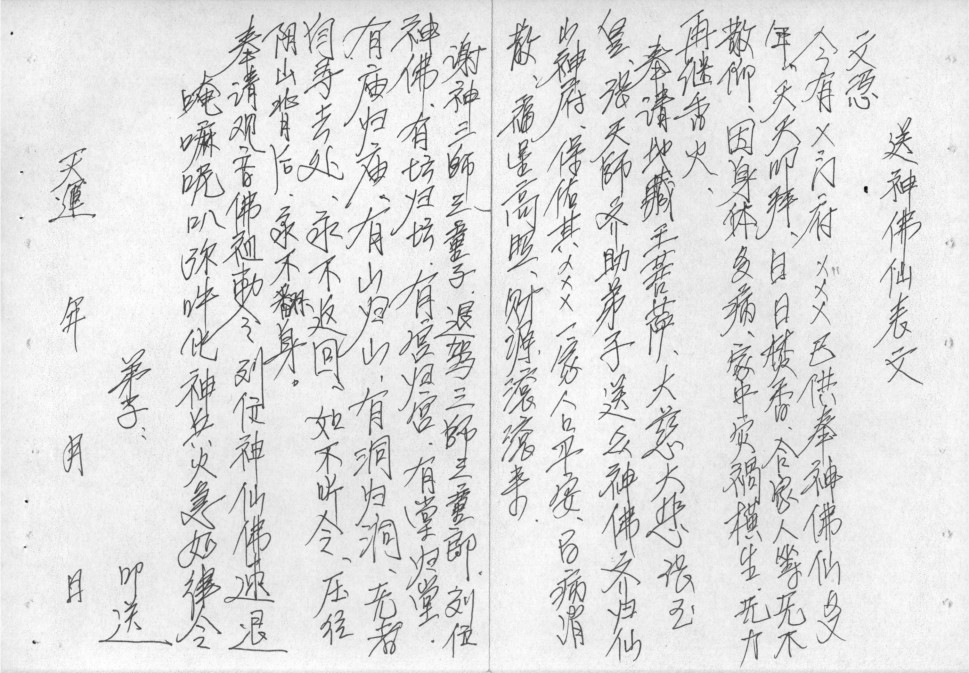 送神佛仙表文
文悉
今有××门府×××已供奉神佛仙多
年、天天叩拜、日日焚香、合家人等无不
敬仰、因身体多病、家中灾祸横生、无力
再继香火、
奉请地藏王菩萨、大慈大悲张玉
皇、张天師、齐助弟子送众神佛齐归仙
山神府、保佑其×××一家人口平安、百病消
散、福星高照、财源滚滚来。
谢神三師三童子、退驾三師三童郎、列位
神佛、有坛归坛、有宫归宫、有堂归堂、
有庙归庙、有山归山、有洞归洞、无者
自寻去处、永不返回、如不听令、压往
阴山背后、永不翻身。
奉请观音佛祖勅令列位神仙佛速退
唵嘛呢叭弥吽 神兵火急如律令
弟子、 叩送
天運 年 月 日